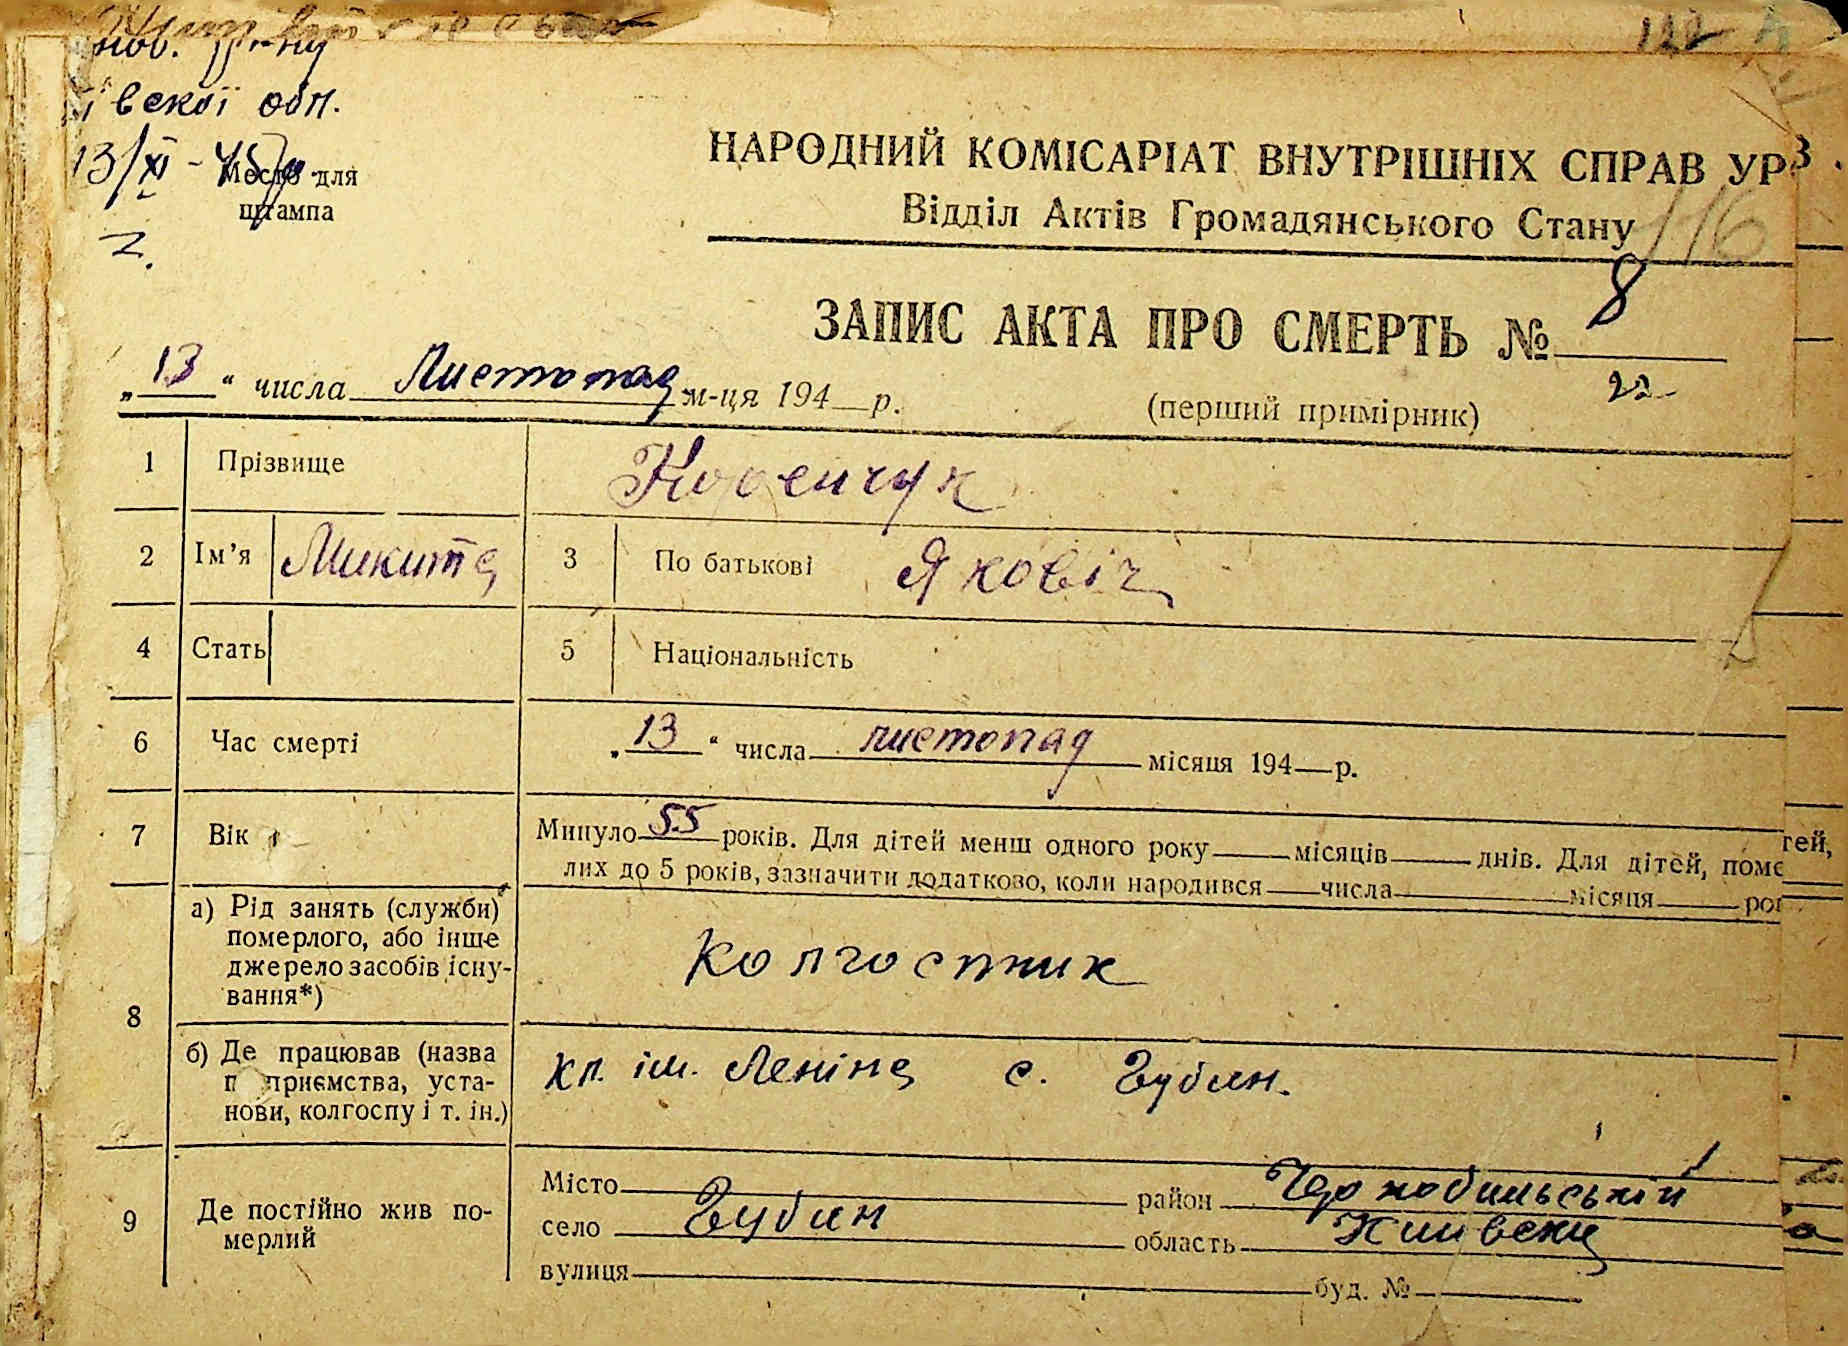 ської обл.
13/XI - 45 р.
Место для
штампа
НАРОДНИЙ КОМІСАРІАТ ВНУТРІШНІХ СПРАВ УР
Відділ Актів Громадянського Стану
116
ЗАПИС АКТА ПРО СМЕРТЬ № 8
22
„13“ числа Листопад м-ця 194 р.
(перший примірник)
1 Прізвище
2 Ім’я Микита 3 По батькові Яковіч
4 Стать 5 Національність
6 Час смерті „13“ числа листопад місяця 194 р.
7 Вік Минуло 55 років. Для дітей менш одного року місяців днів. Для дітей, поме
лих до 5 років, зазначити додатково, коли народився числа місяця рог
8 а) Рід занять (служби)
померлого, або інше
джерело засобів існу-
вання*)
Колгоспник
б) Де працював (назва
п приємства, уста-
нови, колгоспу і т. ін.)
Кл. ім. Леніна с. Зубин.
9 Де постійно жив по-
мерлий
Місто район Чорнобильській
село Зубин область Київська
вулиця буд. №